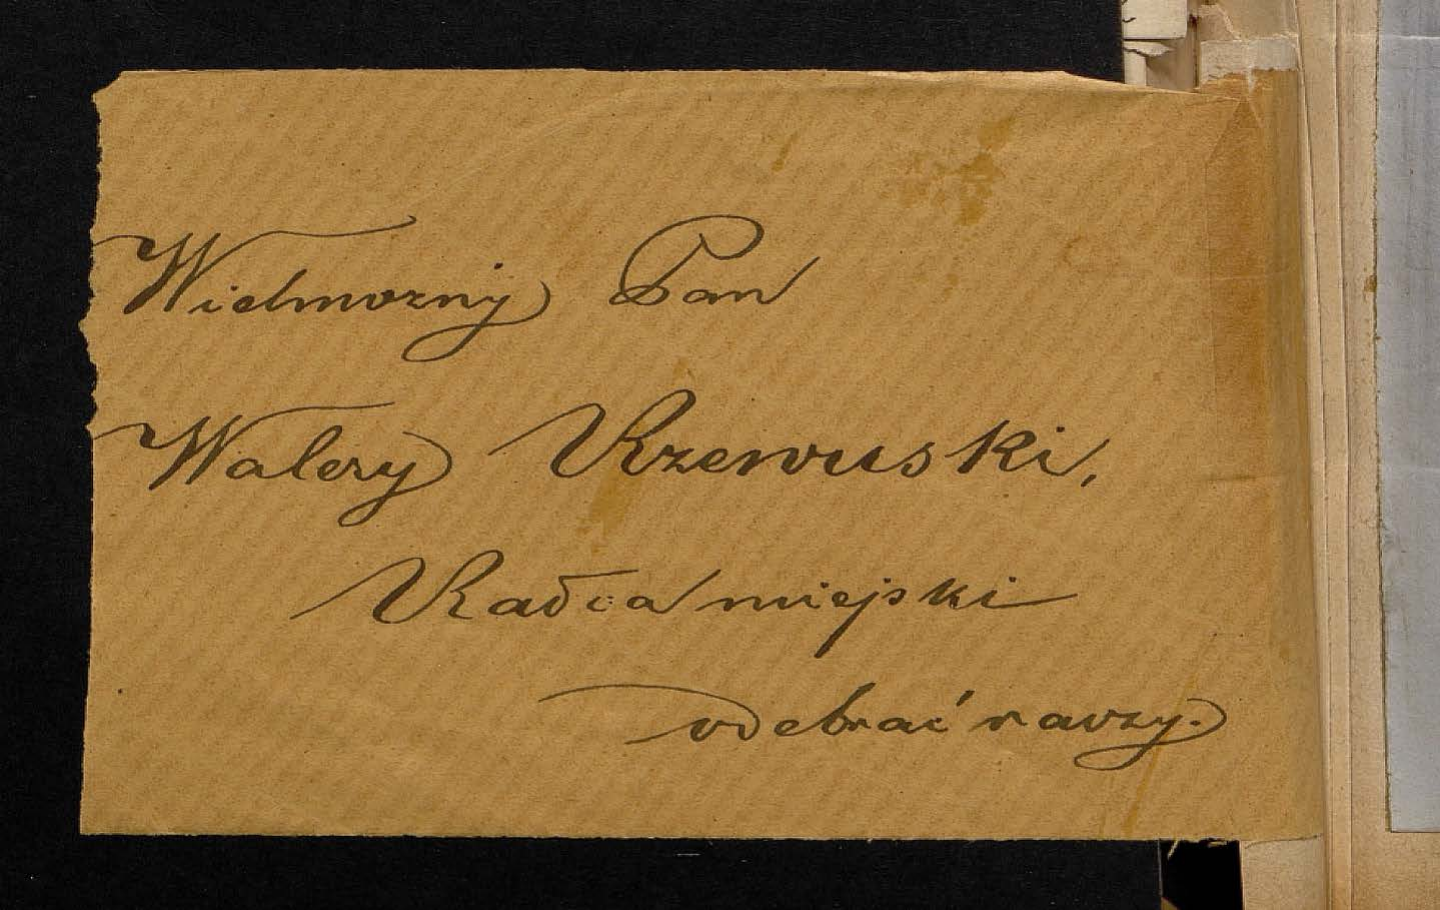 Wielmożny Pan
Walery Rzewuski,
Radca miejski
odebrać raczy.